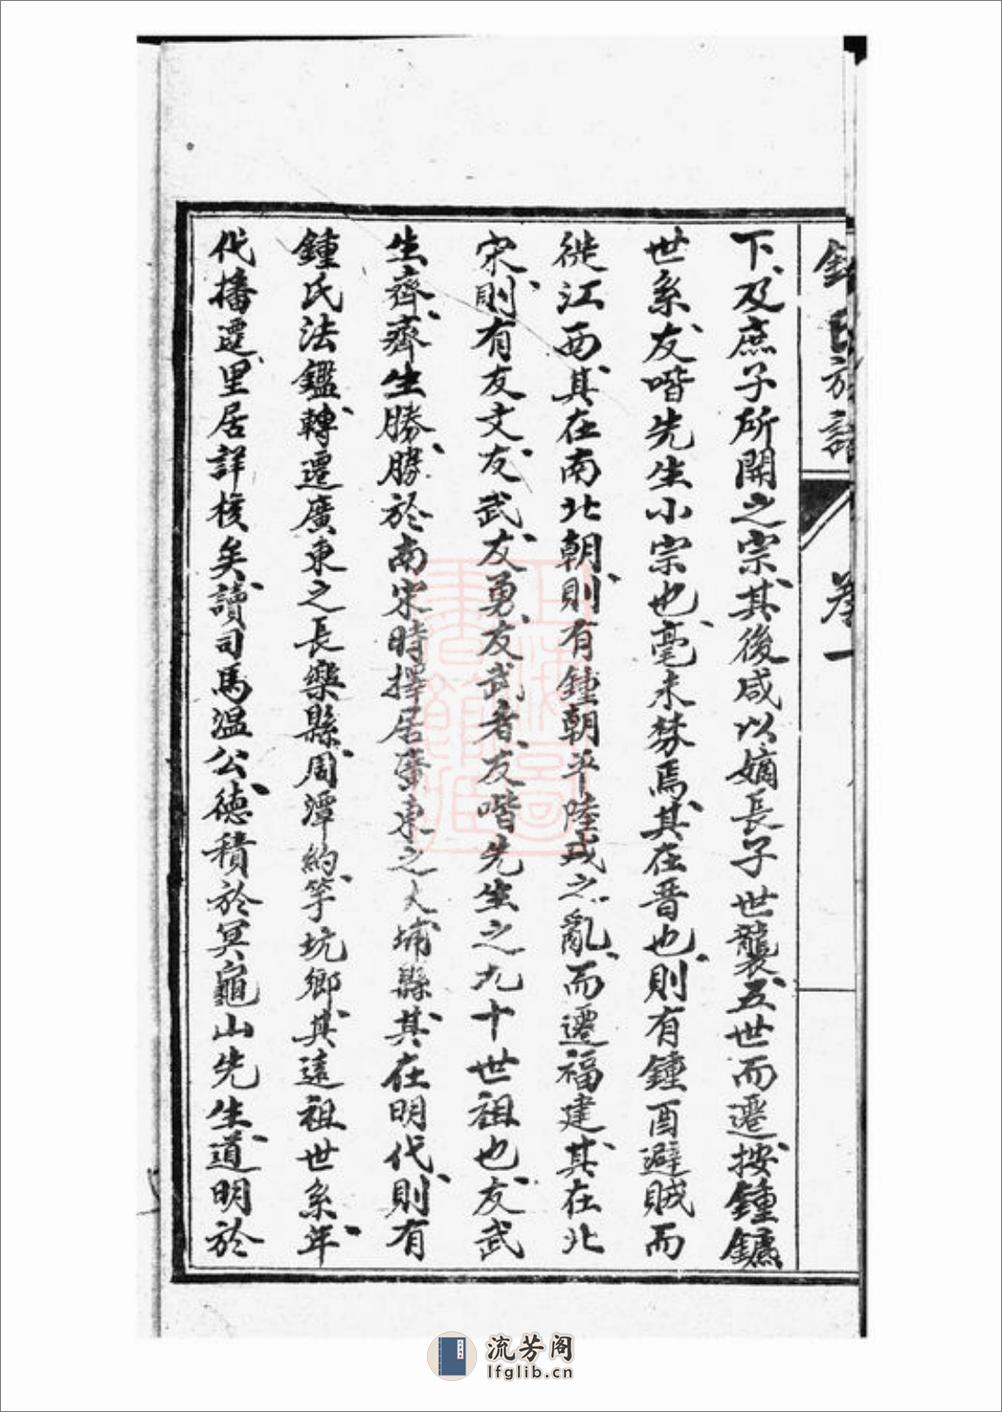 鍾氏族譜
卷一
下及庶子所開之宗其後咸以嫡長子世襲五世而遷按鍾鑣
世系友喈先生小宗也毫未棼焉其在晋也則有鍾酉避賊而
徙江西其在南北朝則有鍾朝平陸戎之亂而遷福建其在北
宋則有友文友武友勇友武者友喈先生之九十世祖也友武
生齊齊生勝勝於南宋時擇居廣東之大埔縣其在明代則有
鍾氏法鑑轉遷廣東之長樂縣周潭約竽坑鄉其遠祖世系年
代播遷里居詳核矣讀司馬溫公德積於冥龜山先生道明於
流芳阁
lfglib.cn